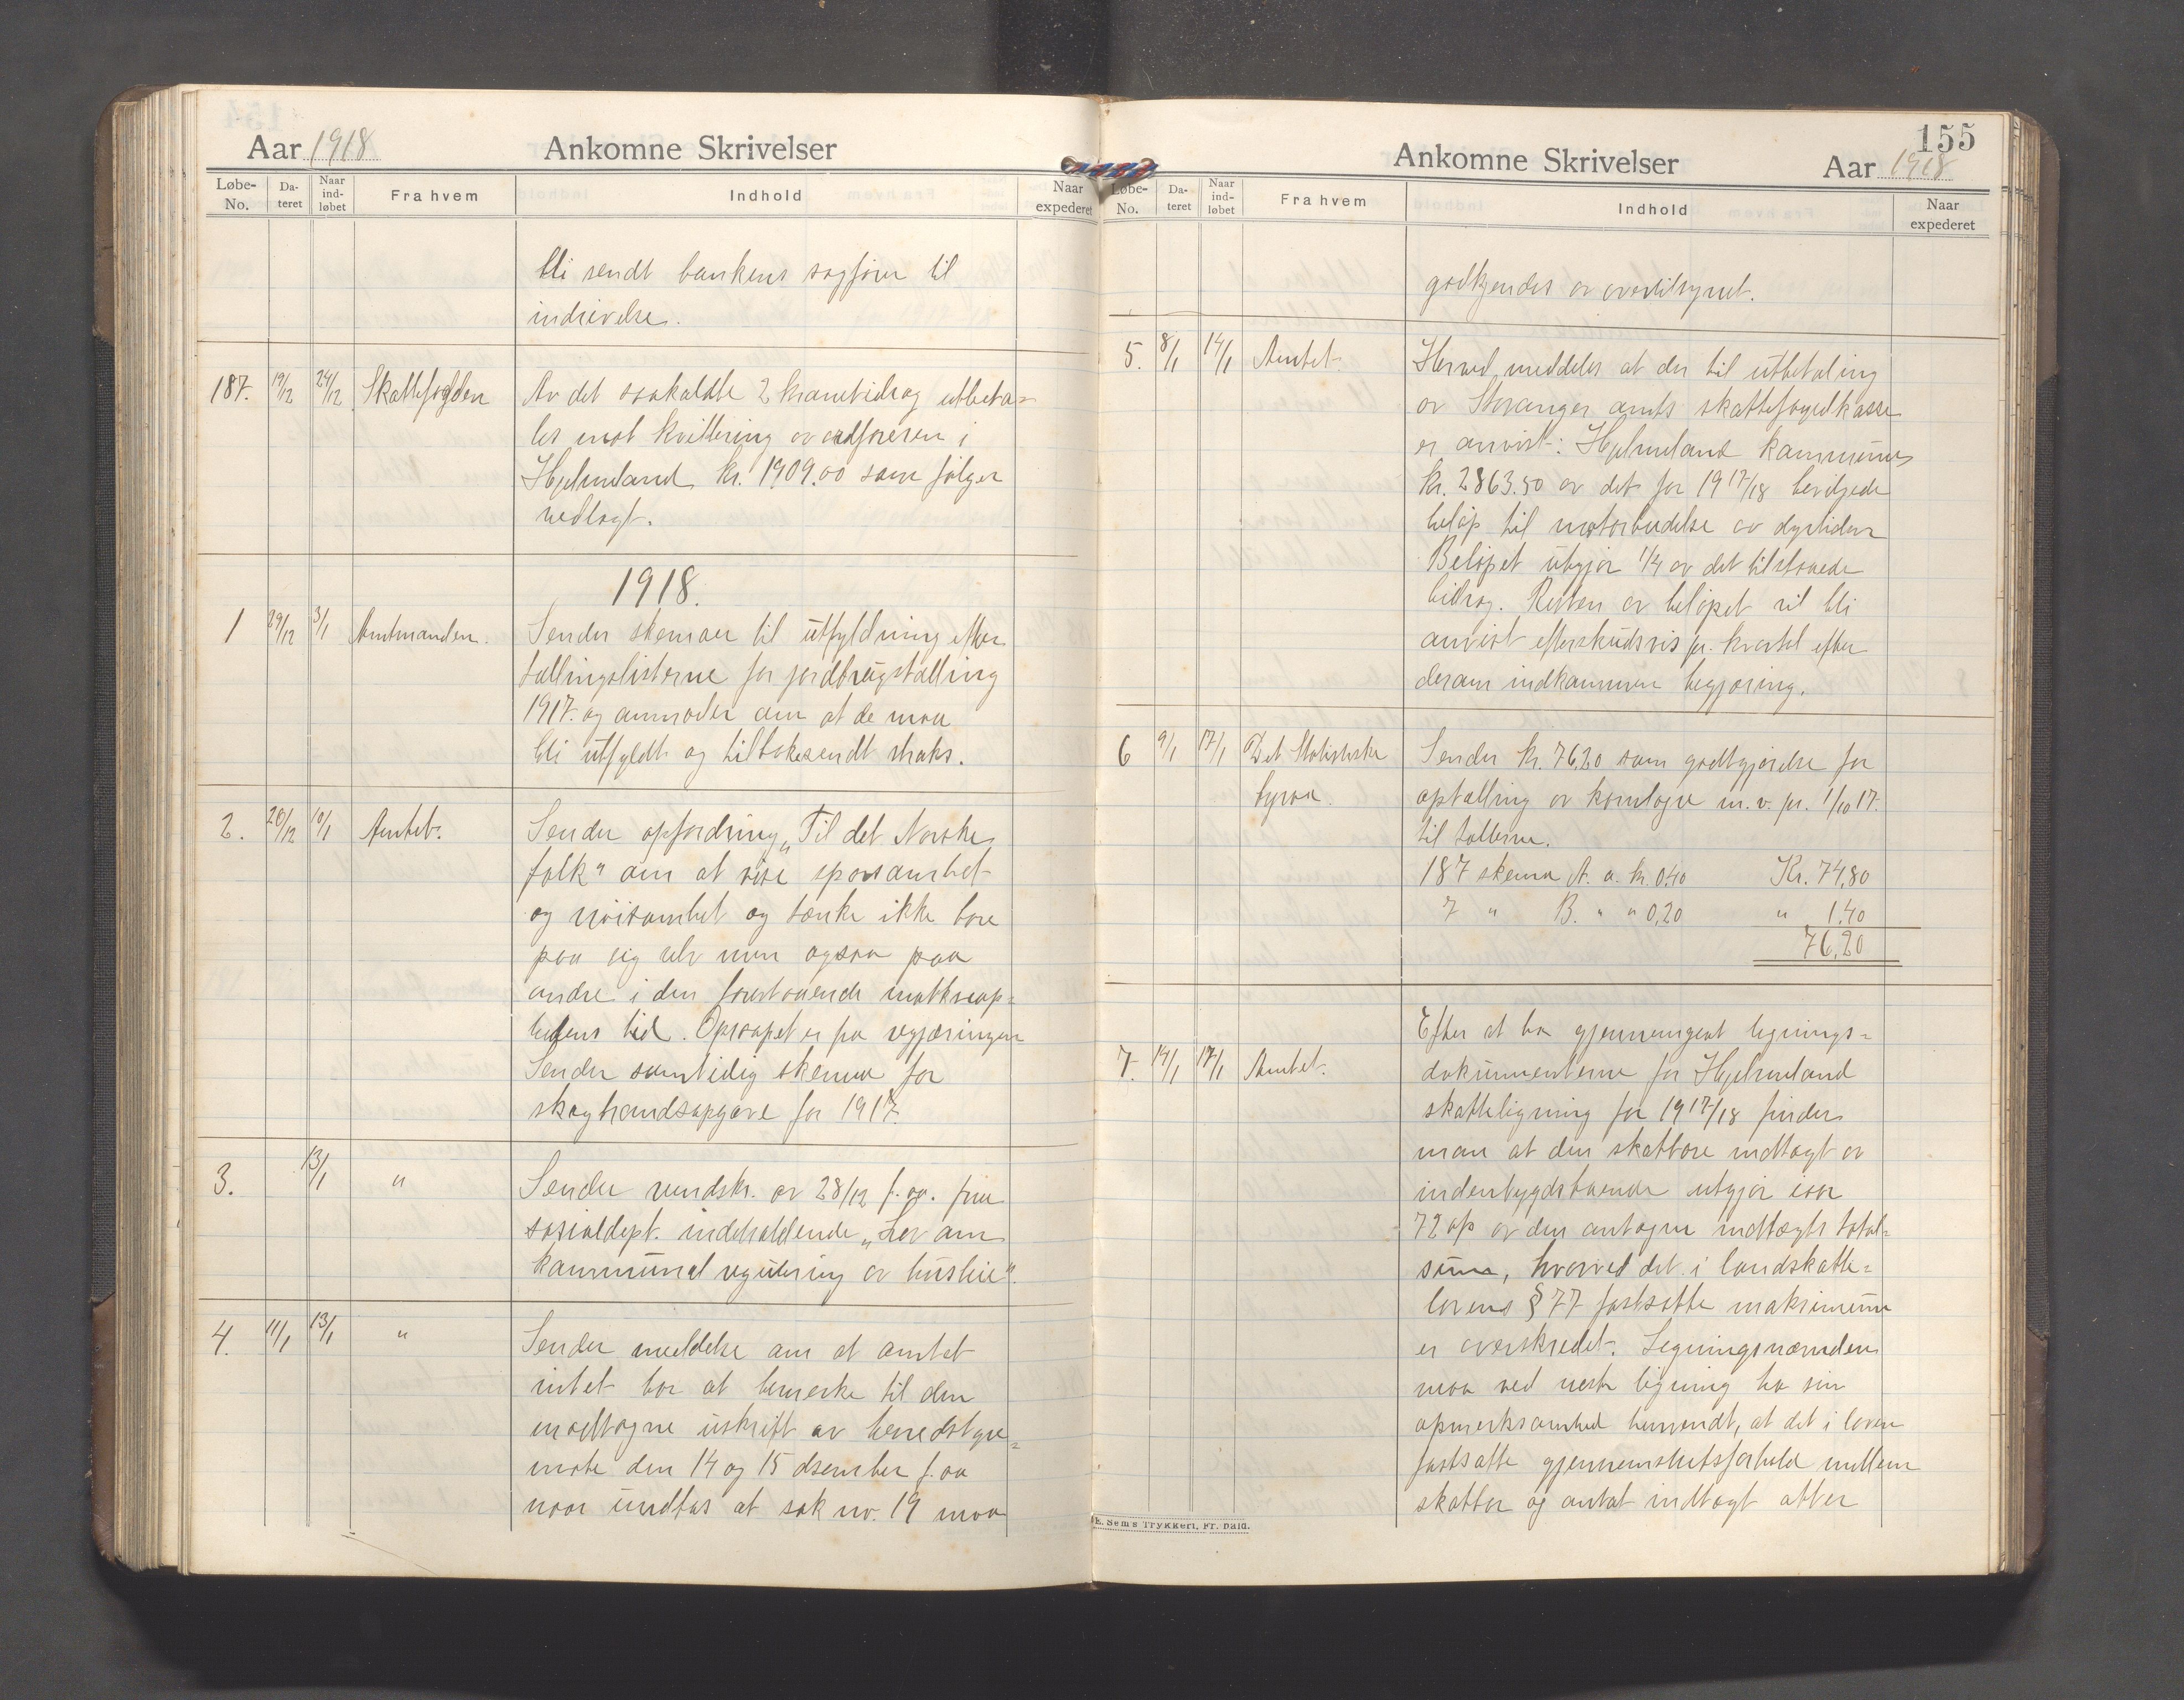 Aar 1918 Ankomne Skrivelser
Løbe-No. Da-teret Naar ind-løbet Fra hvem Indhold Naar expederet
bli sendt bankens sagfører til
indrivelse.
187. 19/12 24/12 Skattefogden Av det saakaldte 2 kronebidrag utbeta=
les mot kvittering av ordføreren i
Hjelmeland kr. 1909.00 som følger
vedlagt.
1918.
1 29/12 3/1 Amtmanden. Sender skemaer til utfyldning efter
tællingslisterne for jordbrugstælling
1917. og anmoder om at de maa
bli utfyldt og tilbakesendt straks.
2. 20/12 10/1 Amtet. Sender opfordring „Til det Norske
folk" om at vise sparsamhet
og nøisomhet og tænke ikke bare
paa sig selv men ogsaa paa
andre i den forestaaende matknap=
hetens tid. Opropet er fra regjeringen
Sender samtidig skema for
skoghandsopgave for 1917.
3. 13/1 " Sender rundskr. av 28/12 f. aa. fra
sosialdept. indeholdende „Lov om
kommunal regulering av husleie".
4. 11/1 13/1 " Sender meddelse om at amtet
intet har at bemerke til den
modtagne utskrift av herredstyre=
møte den 14 og 15 dsember f. aa
naar undtas at sak nr. 19 maa
155
Ankomne Skrivelser Aar 1918
Løbe-No. Da-teret Naar ind-løbet Fra hvem Indhold Naar expederet
godkjendes av overtilsynet.
5. 8/1 14/1 Amtet. Herved meddeles at der til utbetaling
av Stavanger amts skattefogedkasse
er anvist: Hjelmeland kommune
kr. 2863.50 av det for 1917/18 bevilgede
beløp til motarbeidelse av dyrtiden
Beløpet utgjør 1/4 av det tilstaaede
bidrag. Resten av beløpet vil bli
anvist efterskudsvis pr. kvartal efter
derom indkommen begjæring.
6 9/1 17/1 Det Statistiske Sender kr. 76,20 som godtgjørelse for
byraa. optælling av kornlagre m. v. pr. 1/10 17.
til tællerne.
187 skema A. a. kr. 0,40 Kr. 74,80
7 " B. " " 0,20 " 1.40
76,20
Efter at ha gjennemgaat lignings=
7. 14/1 17/1 Amtet. dokumenterne for Hjelmeland
skatteligning for 1917/18 finder
man at den skatbare indtægt av
indenbygdsboende utgjør især
72 op av den antagne indtægts total=
sum, hvorved det i landskatte=
lovens § 77 fastsatte maksimum
er overskredet. Ligningsnævnden
maa ved neste ligning ha sin
opmerksomhed henvendt, at det i loven
fastsatte gjennemsnitsforhold mellem
skatbar og antat indtægt atter
E. Sem's Trykkeri, Fr. hald.